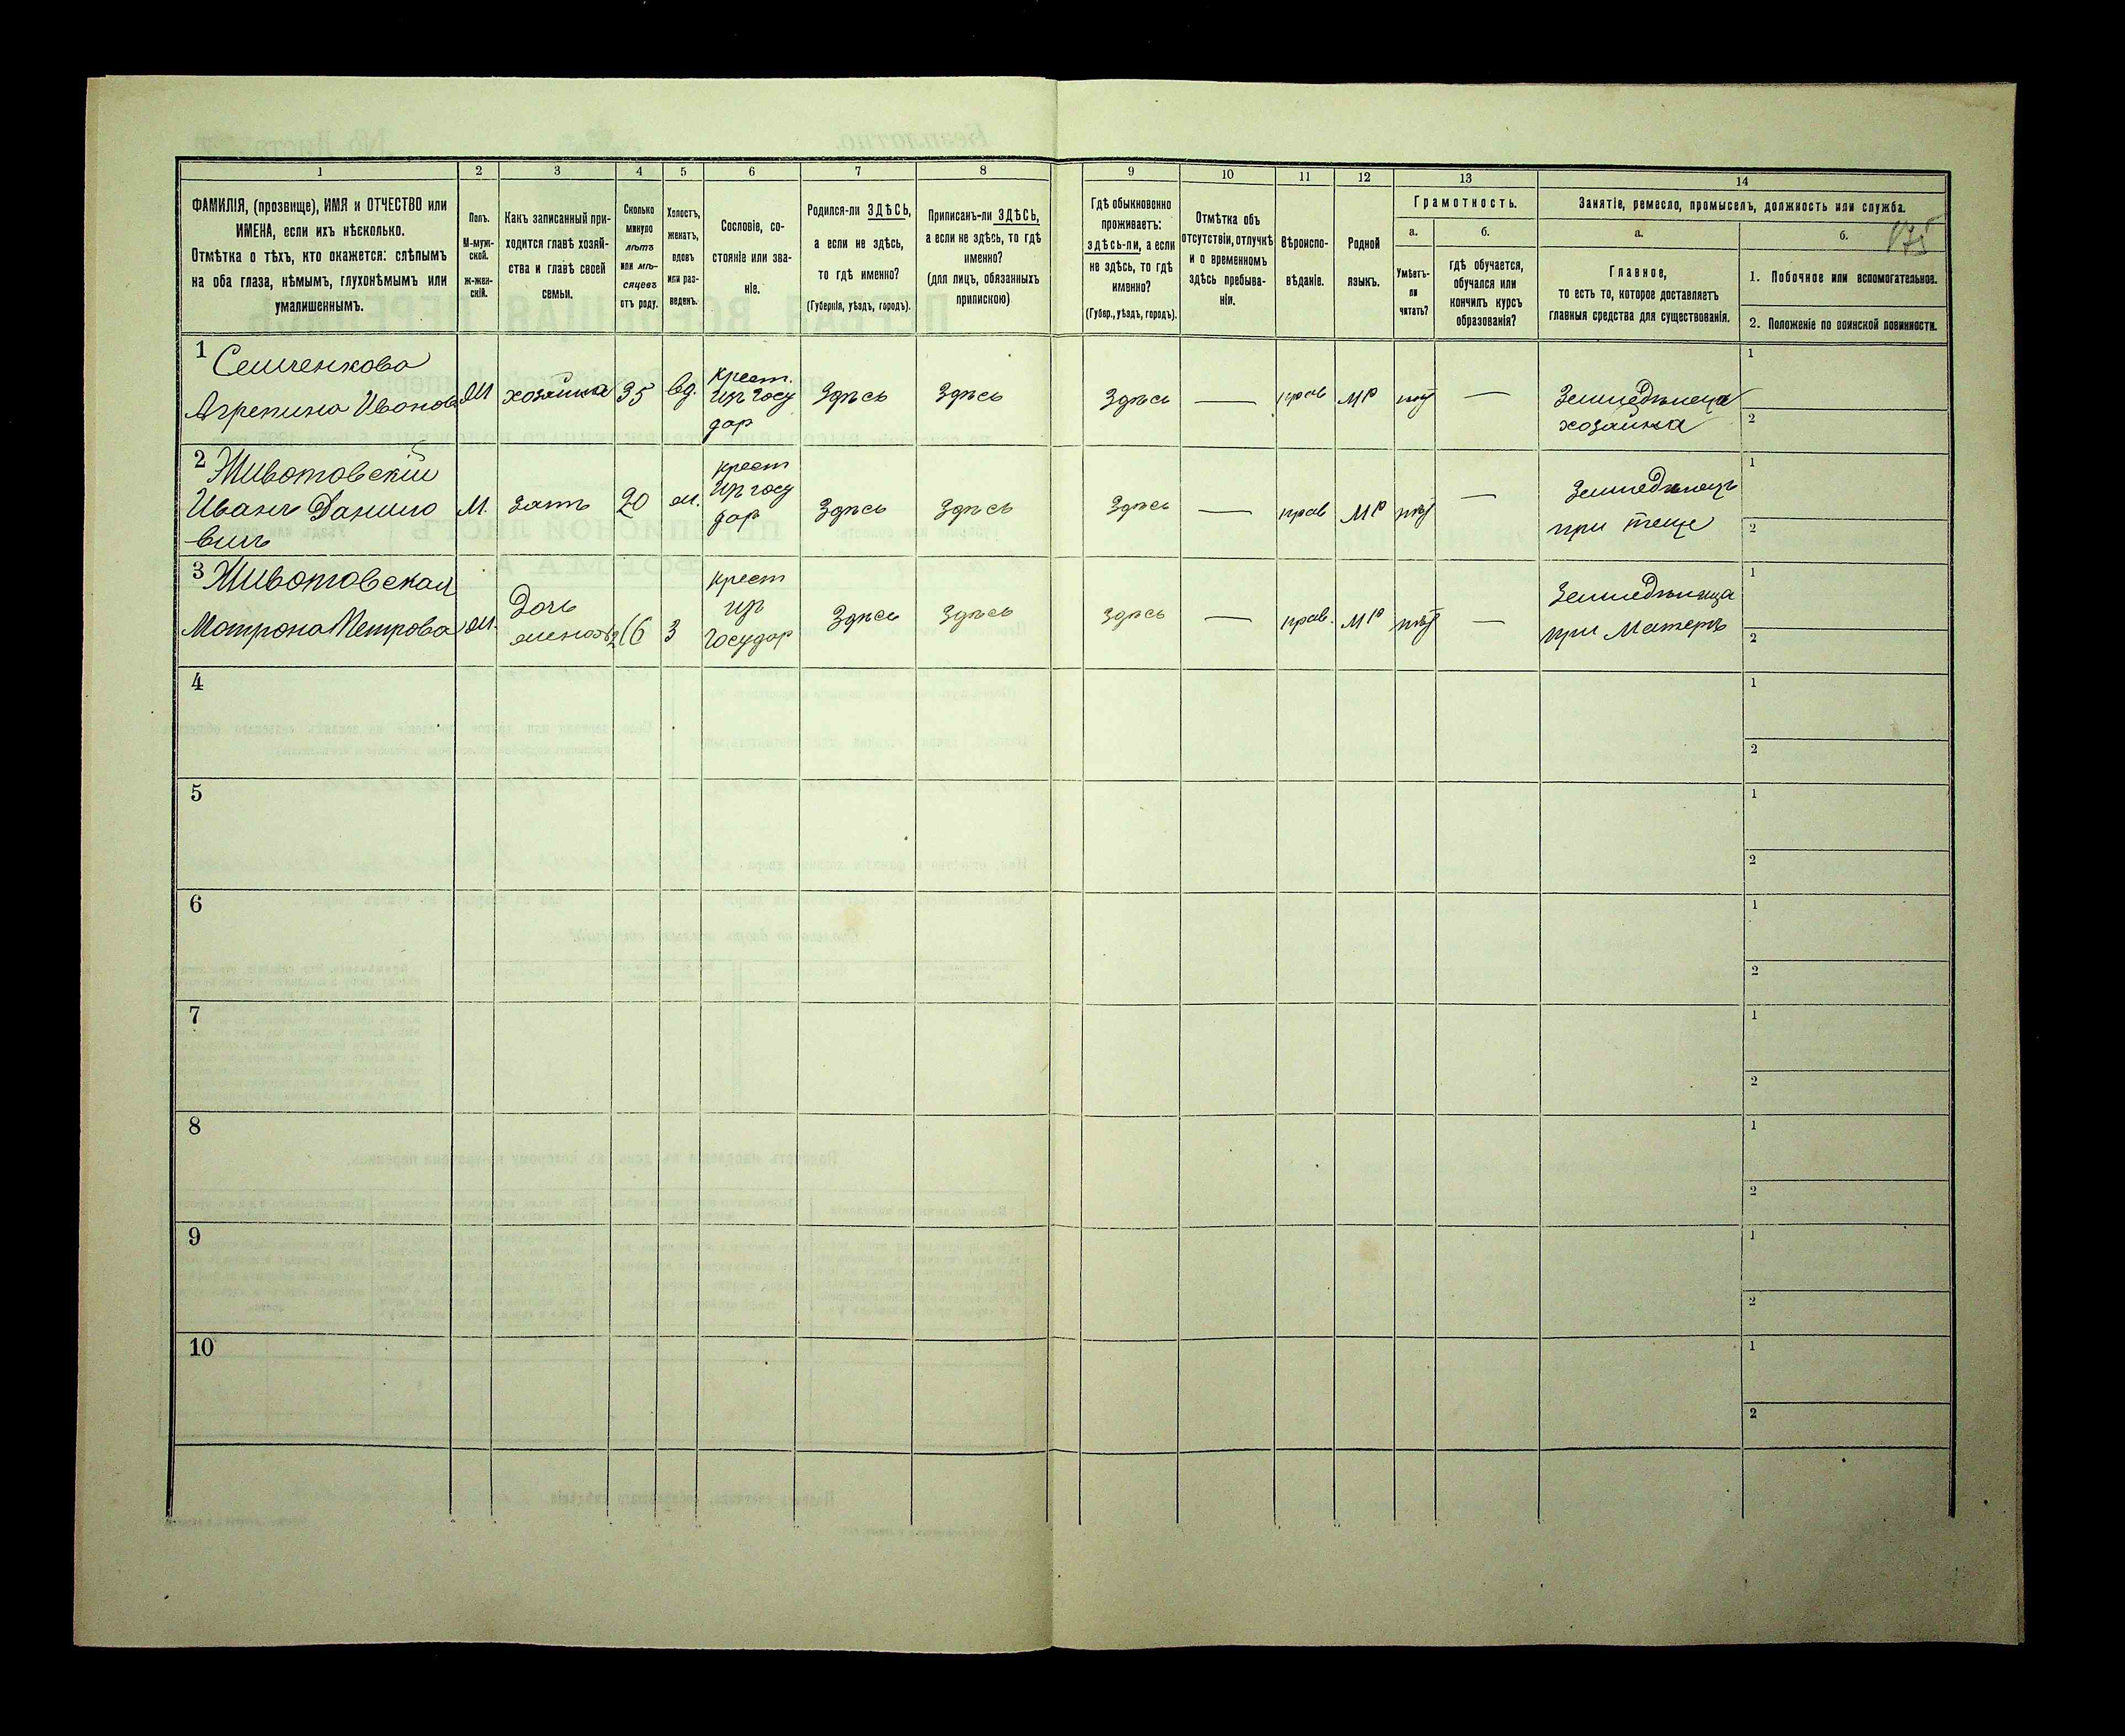 1 2 3 4 5 6 7 8 9 10 11 12 13 14
ФАМИЛІЯ, (прозвище), ИМЯ и ОТЧЕСТВО или
ИМЕНА, если ихъ нѣсколько.
Отмѣтка о тѣхъ, кто окажется: слѣпымъ
на оба глаза, нѣмымъ, глухонѣмымъ или
умалишеннымъ.
Полъ.
М-муж-
ской.
ж-жен-
скій.
Какъ записанный при-
ходится главѣ хозяй-
ства и главѣ своей
семьи.
Сколько
минуло
лѣтъ
или мѣ-
сяцевъ
отъ роду.
Холостъ,
женатъ,
вдовъ
или раз-
веденъ.
Сословіе, со-
стояніе или зва-
ніе.
Родился-ли ЗДѢСЬ,
а если не здѣсь,
то гдѣ именно?
(Губернія, уѣздъ, городъ).
Приписанъ-ли ЗДѢСЬ,
а если не здѣсь, то гдѣ
именно?
(для лицъ, обязанныхъ
припискою)
Гдѣ обыкновенно
проживаетъ:
здѣсь-ли, а если
не здѣсь, то гдѣ
именно?
(Губер., уѣздъ, городъ).
Отмѣтка объ
отсутствіи, отлучкѣ
и о временномъ
здѣсь пребыва-
ніи.
Вѣроиспо-
вѣданіе.
Родной
языкъ.
Грамотность.
а.
Умѣетъ-
ли
читать?
б.
гдѣ обучается,
обучался или
кончилъ курсъ
образованія?
Занятіе, ремесло, промыселъ, должность или служба.
а.
Главное,
то есть то, которое доставляетъ
главныя средства для существованія.
б.
1. Побочное или вспомогательное.
2. Положеніе по воинской повинности.
1 Семченкова
Агрепина Иванов
хозяйка 35 вд.
крест.
изъ госу
дар
Здѣсь Здѣсь Здѣсь — прав мр нѣт —
Земледѣлеца
хозяйка
1
2
2 Животовскій
Иванъ Данило
вичъ
М. зять 20
крест
изъ госу
дар
Здѣсь Здѣсь Здѣсь — прав мр нѣт —
Земледѣлецъ
при теще
1
2
3 Животовская
Матрона Петрова
Дочь
16 З
крест
изъ
государ
Здѣсь Здѣсь Здѣсь — прав. мр нѣт —
Земледѣлица
при Матерѣ
1
2
4
1
2
5
1
2
6
1
2
7
1
2
8
1
2
9
1
2
10
1
2